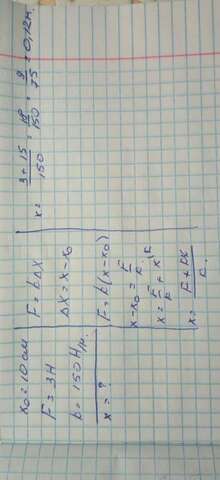 x₀ = 10 см
F = 3Н
k = 150 Н/м
x = ?
F = kΔX
ΔX = x - x₀
F = k(x - x₀)
x - x₀ = F/k
x = F/k + x
x = (F + kx)/k
x = (3 + 15)/150 = 18/150 = 9/75 = 0,12м.